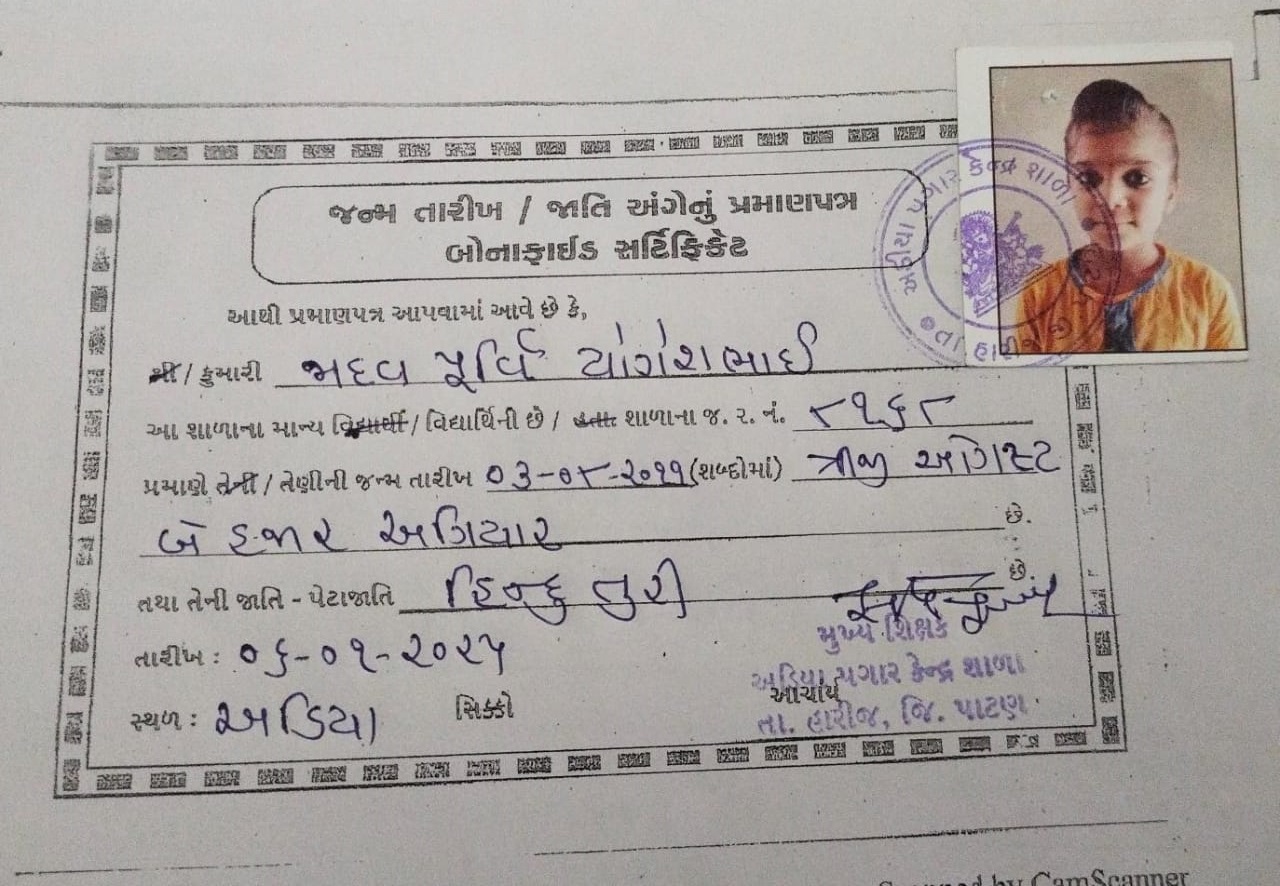 જન્મ તારીખ / જાતિ અંગેનું પ્રમાણપત્ર
બોનાફાઈડ સર્ટિફિકેટ
આથી પ્રમાણપત્ર આપવામાં આવે છે કે,
શ્રી / કુમારી જાદવ પૂર્વિ યોગેશભાઈ
આ શાળાના માન્ય વિદ્યાર્થી / વિદ્યાર્થિની છે / હતા શાળાના જ. ર. નં. ૮૧૬૮
પ્રમાણે તેની / તેણીની જન્મ તારીખ ૦૩-૦૮-૨૦૧૧ (શબ્દોમાં) ત્રીજી ઓગસ્ટ
બે હજાર અગિયાર છે.
તથા તેની જાતિ - પેટાજાતિ હિન્દુ તુરી છે.
તારીખ : ૦૬-૦૧-૨૦૨૫
મુખ્ય શિક્ષક
અડિયા પગાર કેન્દ્ર શાળા
સ્થળ : અડિયા સિક્કો આચાર્ય
તા. હારીજ, જિ. પાટણ
અડીયા પગાર કેન્દ્ર શાળા
તા હારીજ
Scanned by CamScanner